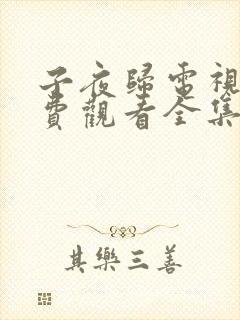 子夜歸電視
費觀看全集
其樂三善